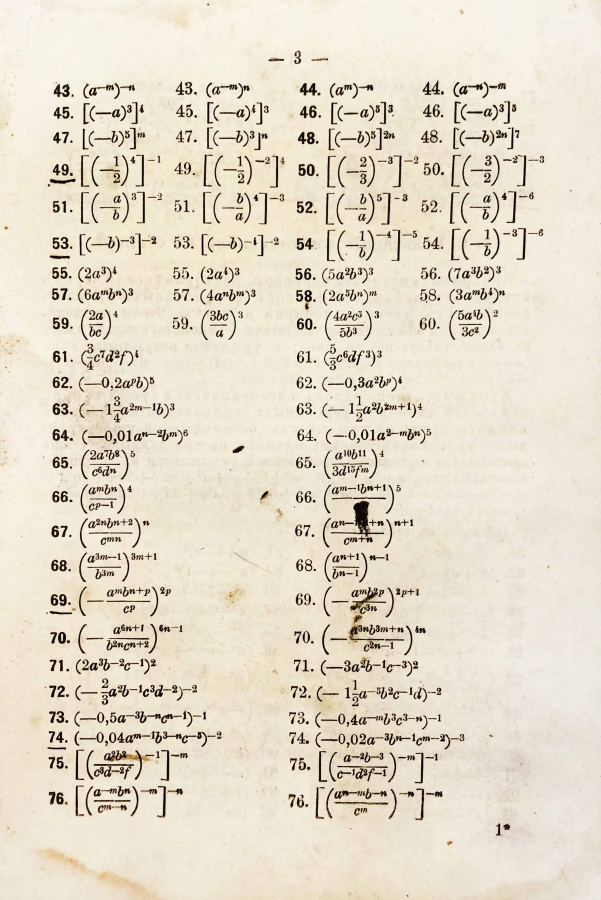 — 3 —
43. (a⁻ᵐ)⁻ⁿ 43. (a⁻ᵐ)ⁿ 44. (aᵐ)⁻ⁿ 44. (a⁻ⁿ)⁻ᵐ
45. [(—a)³]⁴ 45. [(—a)⁴]³ 46. [(—a)⁵]³ 46. [(—a)³]⁵
47. [(—b)⁵]ᵐ 47. [(—b)³]ⁿ 48. [(—b)⁵]²ⁿ 48. [(—b)²ⁿ]⁷
49. [(—1/2)⁴]⁻¹ 49. [(—1/2)⁻²]⁴ 50. [(—2/3)⁻³]⁻² 50. [(—3/2)⁻²]⁻³
51. [(—a/b)³]⁻² 51. [(—b/a)⁴]⁻³ 52. [(—b/a)⁵]⁻³ 52. [(—a/b)⁴]⁻⁶
53. [(—b)⁻³]⁻² 53. [(—b)⁻⁴]⁻² 54 [(—1/b)⁻⁴]⁻⁵ 54. [(—1/b)⁻³]⁻⁶
55. (2a³)⁴ 55. (2a⁴)³ 56. (5a²b³)³ 56. (7a³b²)³
57. (6aᵐbⁿ)³ 57. (4aⁿbᵐ)³ 58. (2a⁵bⁿ)ᵐ 58. (3aᵐb⁴)ⁿ
59. (2a/bc)⁴ 59. (3bc/a)³ 60. (4a²c⁵/5b³)³ 60. (5a⁴b/3c²)²
61. (3/4c⁷d²f)⁴ 61. (5/3c⁶df³)³
62. (—0,2aᵖb)⁵ 62. (—0,3a²bᵖ)⁴
63. (—1 3/4a²ᵐ⁻¹b)³ 63. (—1 1/2a²b²ᵐ⁺¹)⁴
64. (—0,01aⁿ⁻²bᵐ)⁶ 64. (—0,01a²⁻ᵐbⁿ)⁵
65. (2a⁷b⁸/c⁶dⁿ)⁵ 65. (a¹⁰b¹¹/3d¹⁵fᵐ)⁴
66. (aᵐbⁿ/cᵖ⁻¹)⁴ 66. (aᵐ⁻¹bⁿ⁺¹/)⁵
67. (a²ⁿbⁿ⁺²/cᵐⁿ)ⁿ 67. (aⁿ⁻ ⁺ⁿ/cᵐ⁺ⁿ)ⁿ⁺¹
68. (a³ᵐ⁻¹/b³ᵐ)³ᵐ⁺¹ 68. (aⁿ⁺¹/bⁿ⁻¹)ⁿ⁻¹
69. (—aᵐbⁿ⁺ᵖ/cᵖ)²ᵖ 69. (—aᵐb²ᵖ/c³ⁿ)²ᵖ⁺¹
70. (—a⁶ⁿ⁺¹/b²ⁿcⁿ⁺²)⁶ⁿ⁻¹ 70. (—a³ⁿb³ᵐ⁺ⁿ/c²ⁿ⁻¹)⁴ⁿ
71. (2a³b⁻²c⁻¹)² 71. (—3a²b⁻¹c⁻³)²
72. (—2/3a²b⁻¹c³d⁻²)⁻² 72. (—1 1/2a⁻⁵b²c⁻¹d)⁻²
73. (—0,5a⁻³b⁻ⁿcⁿ⁻¹)⁻¹ 73. (—0,4a⁻ᵐb³c³⁻ⁿ)⁻¹
74. (—0,04aᵐ⁻¹b³⁻ⁿc⁻⁵)⁻² 74. (—0,02a⁻³bⁿ⁻¹cᵐ⁻²)⁻³
75. [(a²b³/c³d⁻²f)⁻¹]⁻ᵐ 75. [(a⁻²b⁻³/c⁻¹d²f⁻¹)⁻ᵐ]⁻¹
76. [(a⁻ᵐbⁿ/cᵐ⁻ⁿ)⁻ᵐ]⁻ⁿ 76. [(aⁿ⁻ᵐb⁻ⁿ/cᵐ)⁻ⁿ]⁻ᵐ
1*